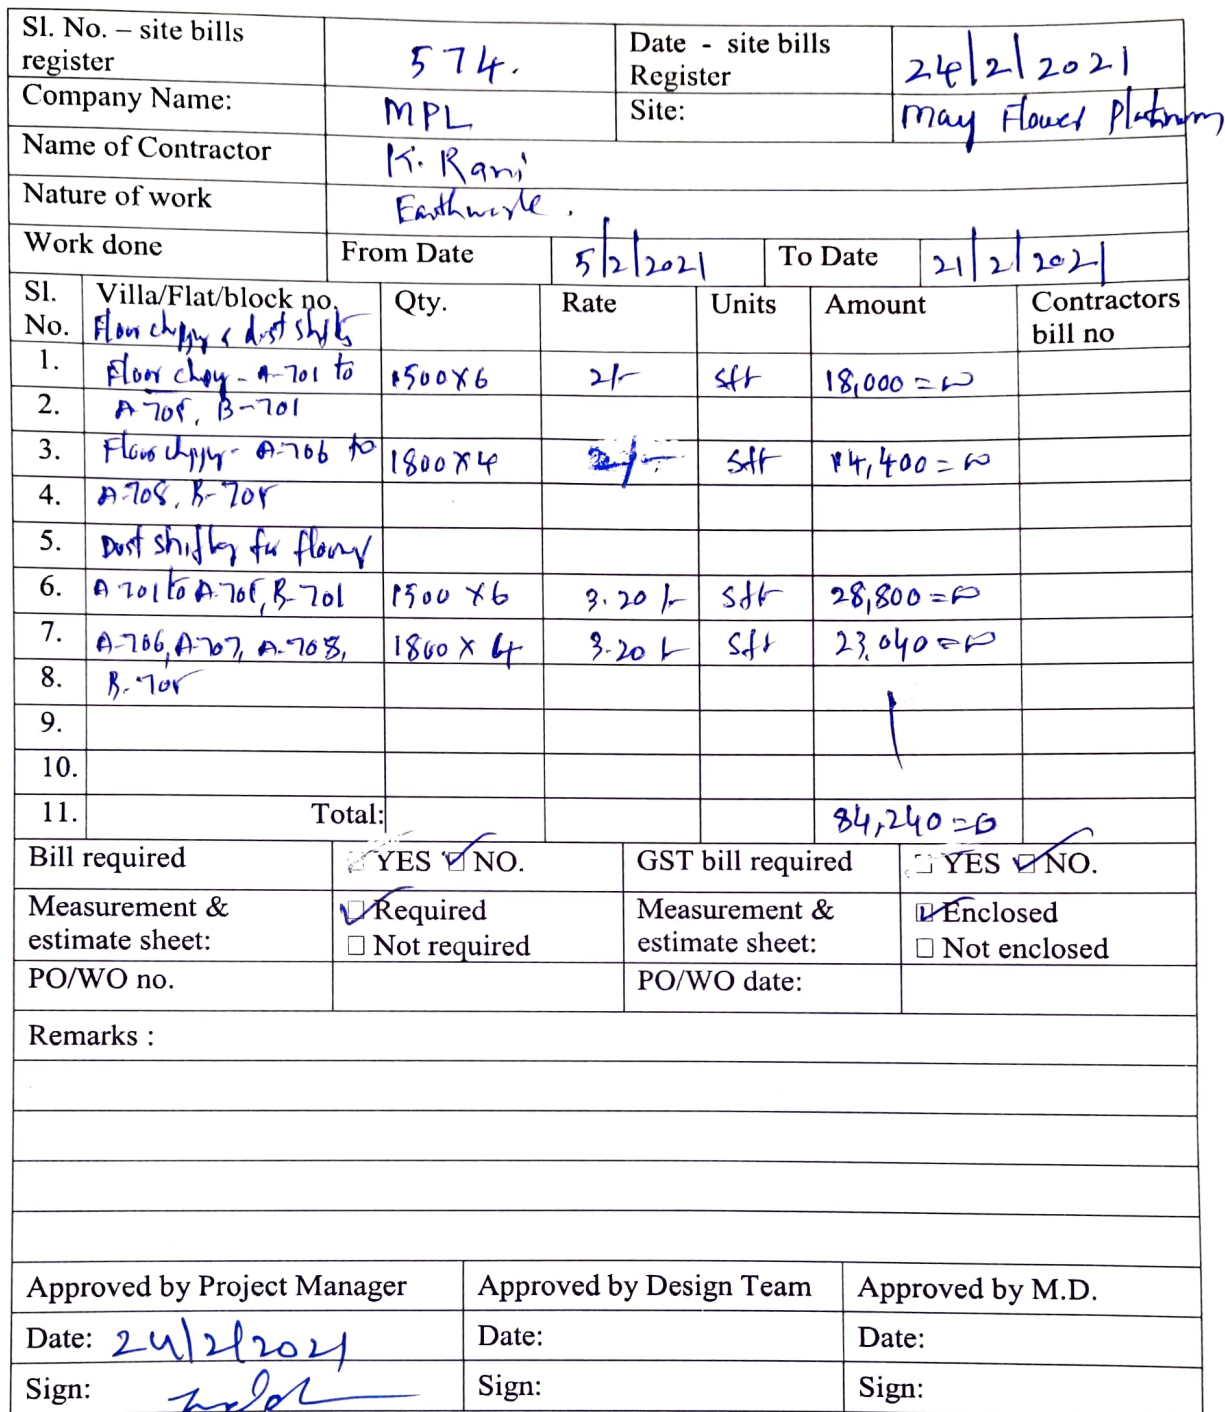 Sl. No. – site bills register 574. Date - site bills Register 24/2/2021
Company Name: MPL Site: May Flower Platinum
Name of Contractor K. Rani
Nature of work Earthwork.
Work done From Date 5/2/2021 To Date 21/2/2021
Sl. No. Villa/Flat/block no. Qty. Rate Units Amount Contractors bill no
Floor & dust
1. Floor - A-701 to 1500x6 2/- sft 18,000=00
2. A-705, B-701
3. Floor - A-706 to 1800x4 2/- sft 14,400=00
4. A-708, B-705
5. Dust shifting for
6. A-701 to A-705, B-701 1500 x6 3.20/- sft 28,800=00
7. A-706, A-707, A-708, 1800 x 4 3.20/- sft 23,040=00
8. B-705
9.
10.
11. Total: 84,240=00
Bill required YES NO. GST bill required YES NO.
Measurement & estimate sheet: Required Measurement & estimate sheet: Enclosed
Not required Not enclosed
PO/WO no. PO/WO date:
Remarks :
Approved by Project Manager Approved by Design Team Approved by M.D.
Date: 24/2/2021 Date: Date:
Sign: Sign: Sign: